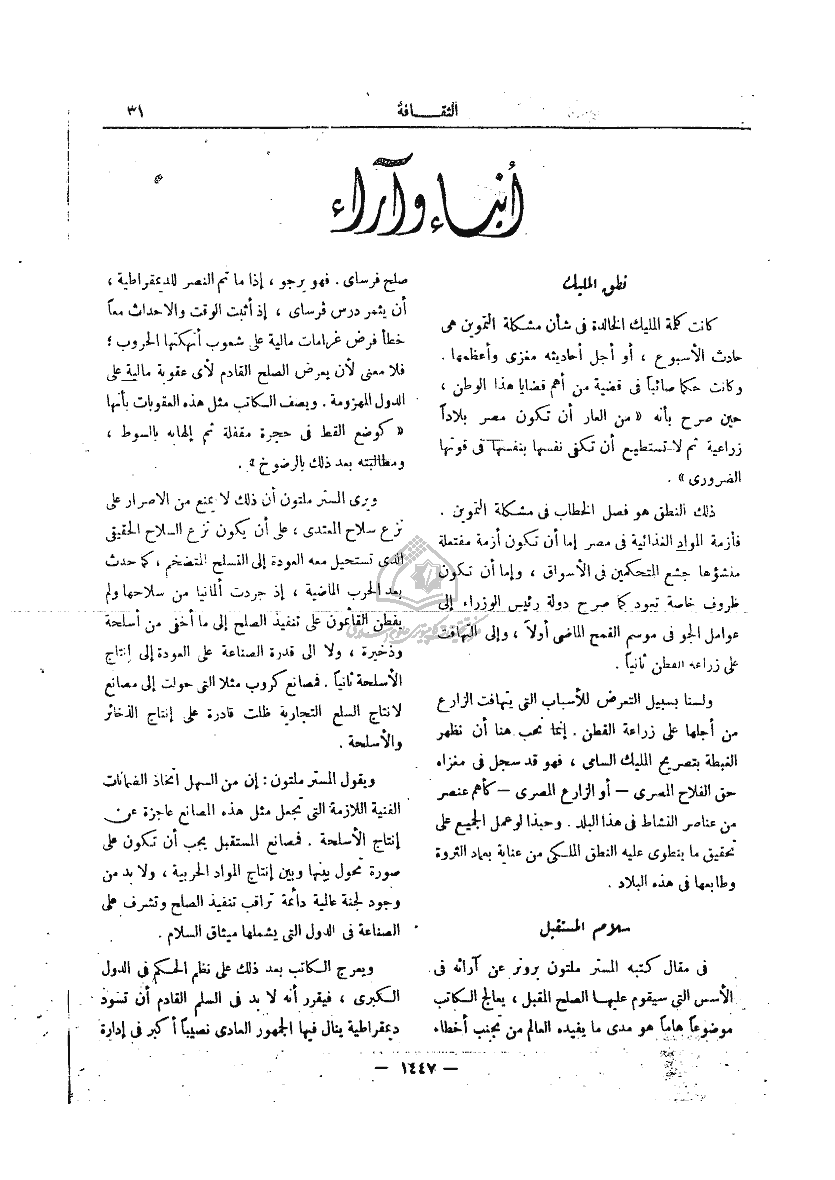 ٣١
الثقافة
أنباء وآراء
نطق المليك
كانت كلمة المليك الخالدة فى شأن مشكلة التموين هى
حادث الأسبوع ، أو أجل أحاديثه مغزى وأعظمها .
وكانت حكما صائباً فى قضية من أهم قضايا هذا الوطن ،
حين صرح بأنه « من العار أن تكون مصر بلاداً
زراعية ثم لا تستطيع أن تكفى نفسها بنفسها فى قوتها
الضرورى » .
ذلك النطق هو فصل الخطاب فى مشكلة التموين .
فأزمة المواد الغذائية فى مصر إما أن تكون أزمة مفتعلة
منشؤها جشع المتحكمين فى الأسواق ، وإما أن تكون
ظروف خاصة تعود كما صرح دولة رئيس الوزراء إلى
عوامل الجو فى موسم القمح الماضى أولاً ، وإلى التهافت
على زراعة القطن ثانياً .
ولسنا بسبيل التعرض للأسباب التى يتهافت الزارع
من أجلها على زراعة القطن . إنما نحب هنا أن نظهر
الغبطة بتصريح المليك السامى ، فهو قد سجل فى مغزاه
حق الفلاح المصرى — أو الزارع المصرى — كأهم عنصر
من عناصر النشاط فى هذا البلد . وحبذا لو عمل الجميع على
تحقيق ما ينطوى عليه النطق الملكى من عناية بعماد الثروة
وطابعها فى هذه البلاد .
سلام المستقبل
فى مقال كتبه المستر ملتون برونر عن آرائه فى
الأسس التى سيقوم عليها الصلح المقبل ، يعالج الكاتب
موضوعاً هاماً هو مدى ما يفيده العالم من تجنب أخطاء
صلح فرساى . فهو يرجو ، إذا ما تم النصر للديمقراطية ،
أن يثمر درس فرساى ، إذ أثبت الوقت والاحداث معاً
خطأ فرض غرامات مالية على شعوب أنهكتها الحروب ؛
فلا معنى لأن يعرض الصلح القادم لأى عقوبة مالية على
الدول المهزومة . ويصف الكاتب مثل هذه العقوبات بأنها
« كوضع القط فى حجرة مقفلة ثم إلهابه بالسوط ،
ومطالبته بعد ذلك بالرضوخ » .
ويرى المستر ملتون أن ذلك لا يمنع من الاصرار على
نزع سلاح المعتدى ، على أن يكون نزع السلاح الحقيقى
الذى تستحيل معه العودة إلى التسلح المتضخم ، كما حدث
بعد الحرب الماضية ، إذ جردت ألمانيا من سلاحها ولم
يفطن القائمون على تنفيذ الصلح إلى ما أخفى من أسلحة
وذخيرة ، ولا الى قدرة الصناعة على العودة إلى إنتاج
الأسلحة ثانياً . فمصانع كروب مثلا التى حولت إلى مصانع
لانتاج السلع التجارية ظلت قادرة على إنتاج الذخائر
والأسلحة .
ويقول المستر ملتون : إن من السهل اتخاذ الضمانات
الفنية اللازمة التى تجعل مثل هذه المصانع عاجزة عن
إنتاج الأسلحة . فمصانع المستقبل يجب أن تكون على
صورة تحول بينها وبين إنتاج المواد الحربية ، ولا بد من
وجود لجنة عالية دائمة تراقب تنفيذ الصلح وتشرف على
الصناعة فى الدول التى يشملها ميثاق السلام .
ويعرج الكاتب بعد ذلك على نظم الحكم فى الدول
الكبرى ، فيقرر أنه لا بد فى السلم القادم أن تسود
ديمقراطية ينال فيها الجمهور العادى نصيباً أكبر فى إدارة
— ١٤٤٧ —